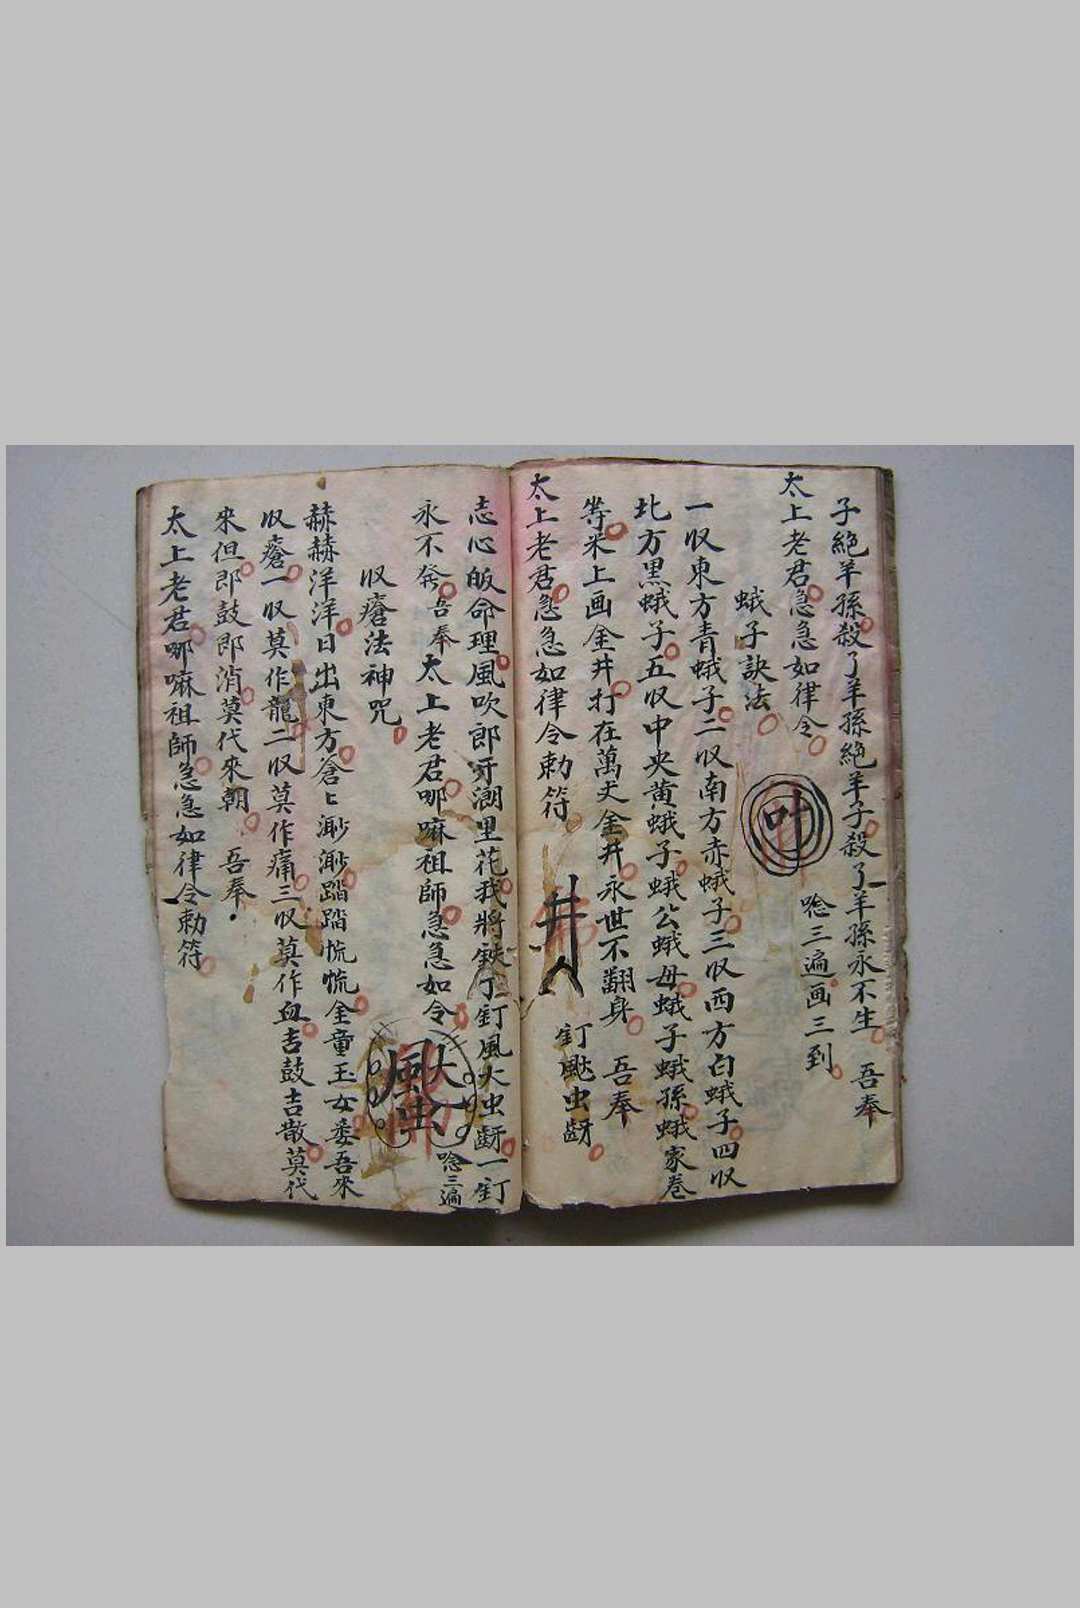 子絕羊孫殺了羊孫絕羊子殺了羊孫永不生 吾奉
太上老君急急如律令 叶 唸三遍画三到
蛾子訣法
一収東方青蛾子二収南方赤蛾子三収西方白蛾子四収
北方黑蛾子五収中央黄蛾子蛾公蛾母蛾子蛾孫蛾家卷
等米上画金井打在萬丈金井永世不翻身 吾奉
太上老君急急如律令勅符 井 釘颩虫齖
志心皈命理風吹郎牙潮里花我將鉄丁釘風火虫齖一釘
永不發吾奉太上老君哪嘛祖師急急如令 唸三遍
収瘡法神咒
赫赫洋洋日出東方滄〻渺渺踏踏慌慌金童玉女委吾來
収瘡一収莫作龍二収莫作痛三収莫作血吉鼓吉散莫代
來但郎鼓郎消莫代來朝 吾奉
太上老君哪嘛祖師急急如律令勅符